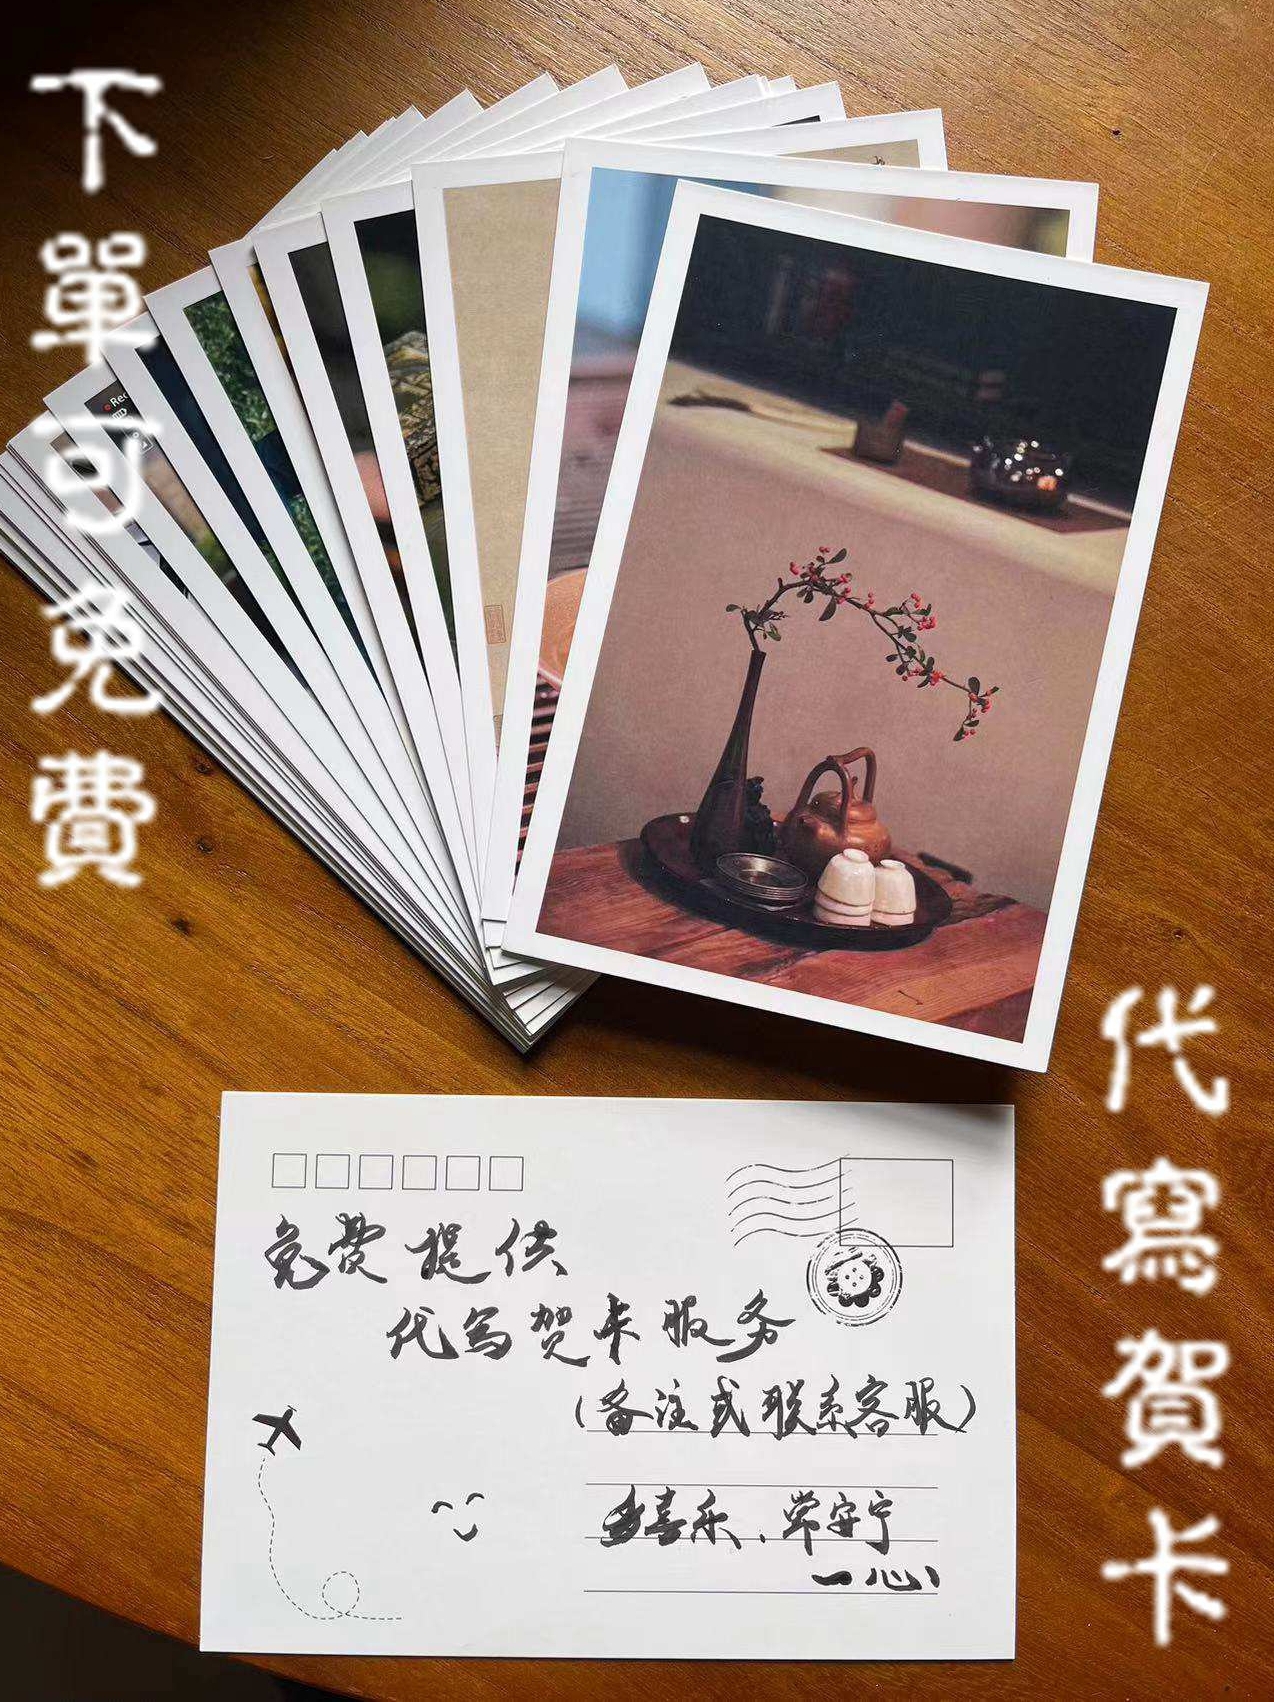 下單可免費
代寫賀卡
Rec
免费提供
代写贺卡服务
（备注或联系客服）
喜乐，常安宁
一心